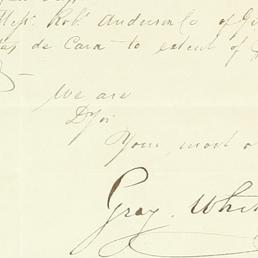 Messrs Robt Anderson Co of G
de Cara - to extent of
We are
D. Sir
Your most o
Gray. Whit